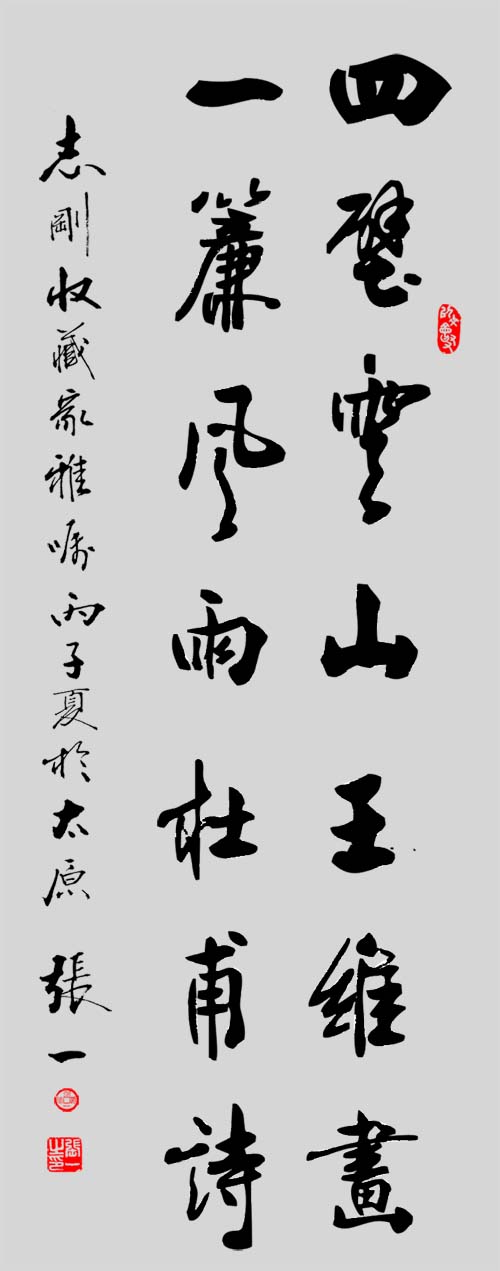 四壁雲山王維畫
一簾風雨杜甫詩
志剛收藏家雅嘱丙子夏於太原 張一
張一之印